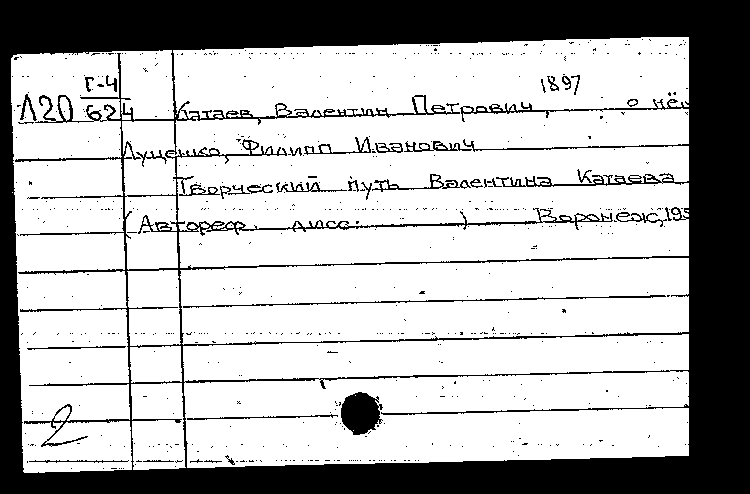 Г-4
Л20 624 Катаев, Валентин Петрович, 1897 о нём
Луценко, Филипп Иванович
Творческий путь Валентина Катаева
(Автореф. дисс. ) Воронеж, 195
2